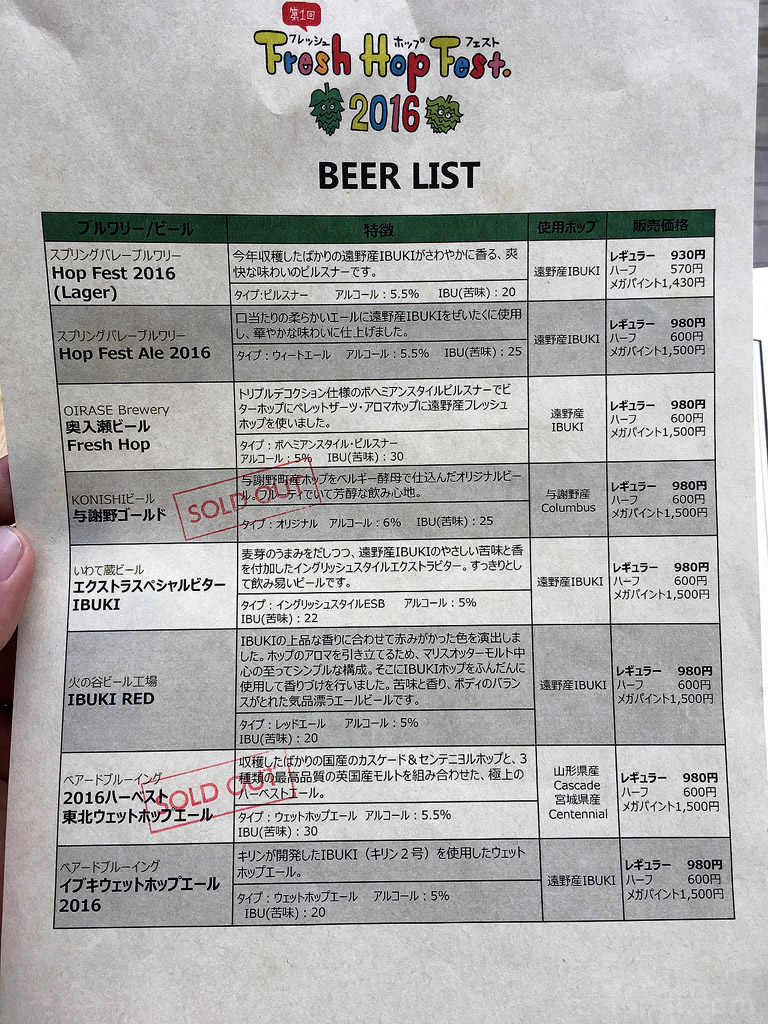 第1回
フレッシュ ホップ フェスト
Fresh Hop Fest.
2016
BEER LIST
ブルワリー/ビール 特徴 使用ホップ 販売価格
スプリングバレーブルワリー
Hop Fest 2016
(Lager)
今年収穫したばかりの遠野産IBUKIがさわやかに香る、爽
快な味わいのピルスナーです。
タイプ:ピルスナー アルコール：5.5% IBU(苦味)：20
遠野産IBUKI
レギュラー 930円
ハーフ 570円
メガパイント1,430円
スプリングバレーブルワリー
Hop Fest Ale 2016
口当たりの柔らかいエールに遠野産IBUKIをぜいたくに使用
し、華やかな味わいに仕上げました。
タイプ：ウィートエール アルコール：5.5% IBU(苦味)：25
遠野産IBUKI
レギュラー 980円
ハーフ 600円
メガパイント1,500円
OIRASE Brewery
奥入瀬ビール
Fresh Hop
トリプルデコクション仕様のボヘミアンスタイルピルスナーでビ
ターホップにペレットザーツ・アロマホップに遠野産フレッシュ
ホップを使いました。
タイプ：ボヘミアンスタイル・ピルスナー
アルコール：5% IBU(苦味)：30
遠野産
IBUKI
レギュラー 980円
ハーフ 600円
メガパイント1,500円
KONISHIビール
与謝野ゴールド
SOLD OUT
与謝野町産ホップをベルギー酵母で仕込んだオリジナルビー
ル。フルーティでいて芳醇な飲み心地。
タイプ：オリジナル アルコール：6% IBU(苦味)：25
与謝野産
Columbus
レギュラー 980円
ハーフ 600円
メガパイント1,500円
いわて蔵ビール
エクストラスペシャルビター
IBUKI
麦芽のうまみをだしつつ、遠野産IBUKIのやさしい苦味と香
を付加したイングリッシュスタイルエクストラビター。すっきりとし
て飲み易いビールです。
タイプ：イングリッシュスタイルESB アルコール：5%
IBU(苦味)：22
遠野産IBUKI
レギュラー 980円
ハーフ 600円
メガパイント1,500円
火の谷ビール工場
IBUKI RED
IBUKIの上品な香りに合わせて赤みがかった色を演出しま
した。ホップのアロマを引き立てるため、マリスオッターモルト中
心の至ってシンプルな構成。そこにIBUKIホップをふんだんに
使用して香りづけを行いました。苦味と香り、ボディのバラン
スがとれた気品漂うエールビールです。
タイプ：レッドエール アルコール：5%
IBU(苦味)：20
遠野産IBUKI
レギュラー 980円
ハーフ 600円
メガパイント1,500円
ベアードブルーイング
2016ハーベスト
東北ウェットホップエール
SOLD OUT
収穫したばかりの国産のカスケード＆センテニヨルホップと、3
種類の最高品質の英国産モルトを組み合わせた、極上の
ハーベストエール。
タイプ：ウェットホップエール アルコール：5.5%
IBU(苦味)：30
山形県産
Cascade
宮城県産
Centennial
レギュラー 980円
ハーフ 600円
メガパイント1,500円
ベアードブルーイング
イブキウェットホップエール
2016
キリンが開発したIBUKI（キリン２号）を使用したウェット
ホップエール。
タイプ：ウェットホップエール アルコール：5%
IBU(苦味)：20
遠野産IBUKI
レギュラー 980円
ハーフ 600円
メガパイント1,500円